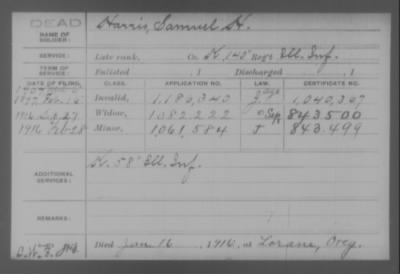 DEAD
NAME OF SOLDIER:
Harris, Samuel H.
SERVICE:
Late rank, Co. K, 145" Reg't Ill. Inf.
TERM OF SERVICE:
Enlisted , 1 Discharged , 1
DATE OF FILING. CLASS. APPLICATION NO. LAW. CERTIFICATE NO.
1897 Feb. 15 Invalid, 1,186,340 1,040,367
1916 27 Widow, 1082222 Sep 843500
1916 Feb 28 Minor, 1,061,584 843.499
ADDITIONAL SERVICES:
K. 58" Ill. Inf.
REMARKS:
Died Jan 16, 1916, at Lorane, Oreg.